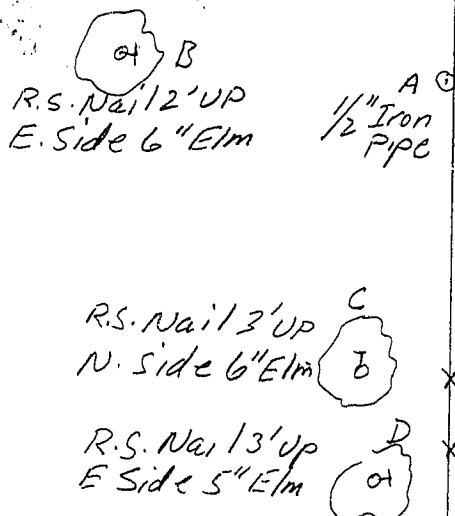 B
R.S. Nail 2' UP
E. Side 6" Elm
A
1/2" Iron
Pipe
C
R.S. Nail 3' UP
N. Side 6" Elm
D
R.S. Nail 3' Up
E Side 5" Elm